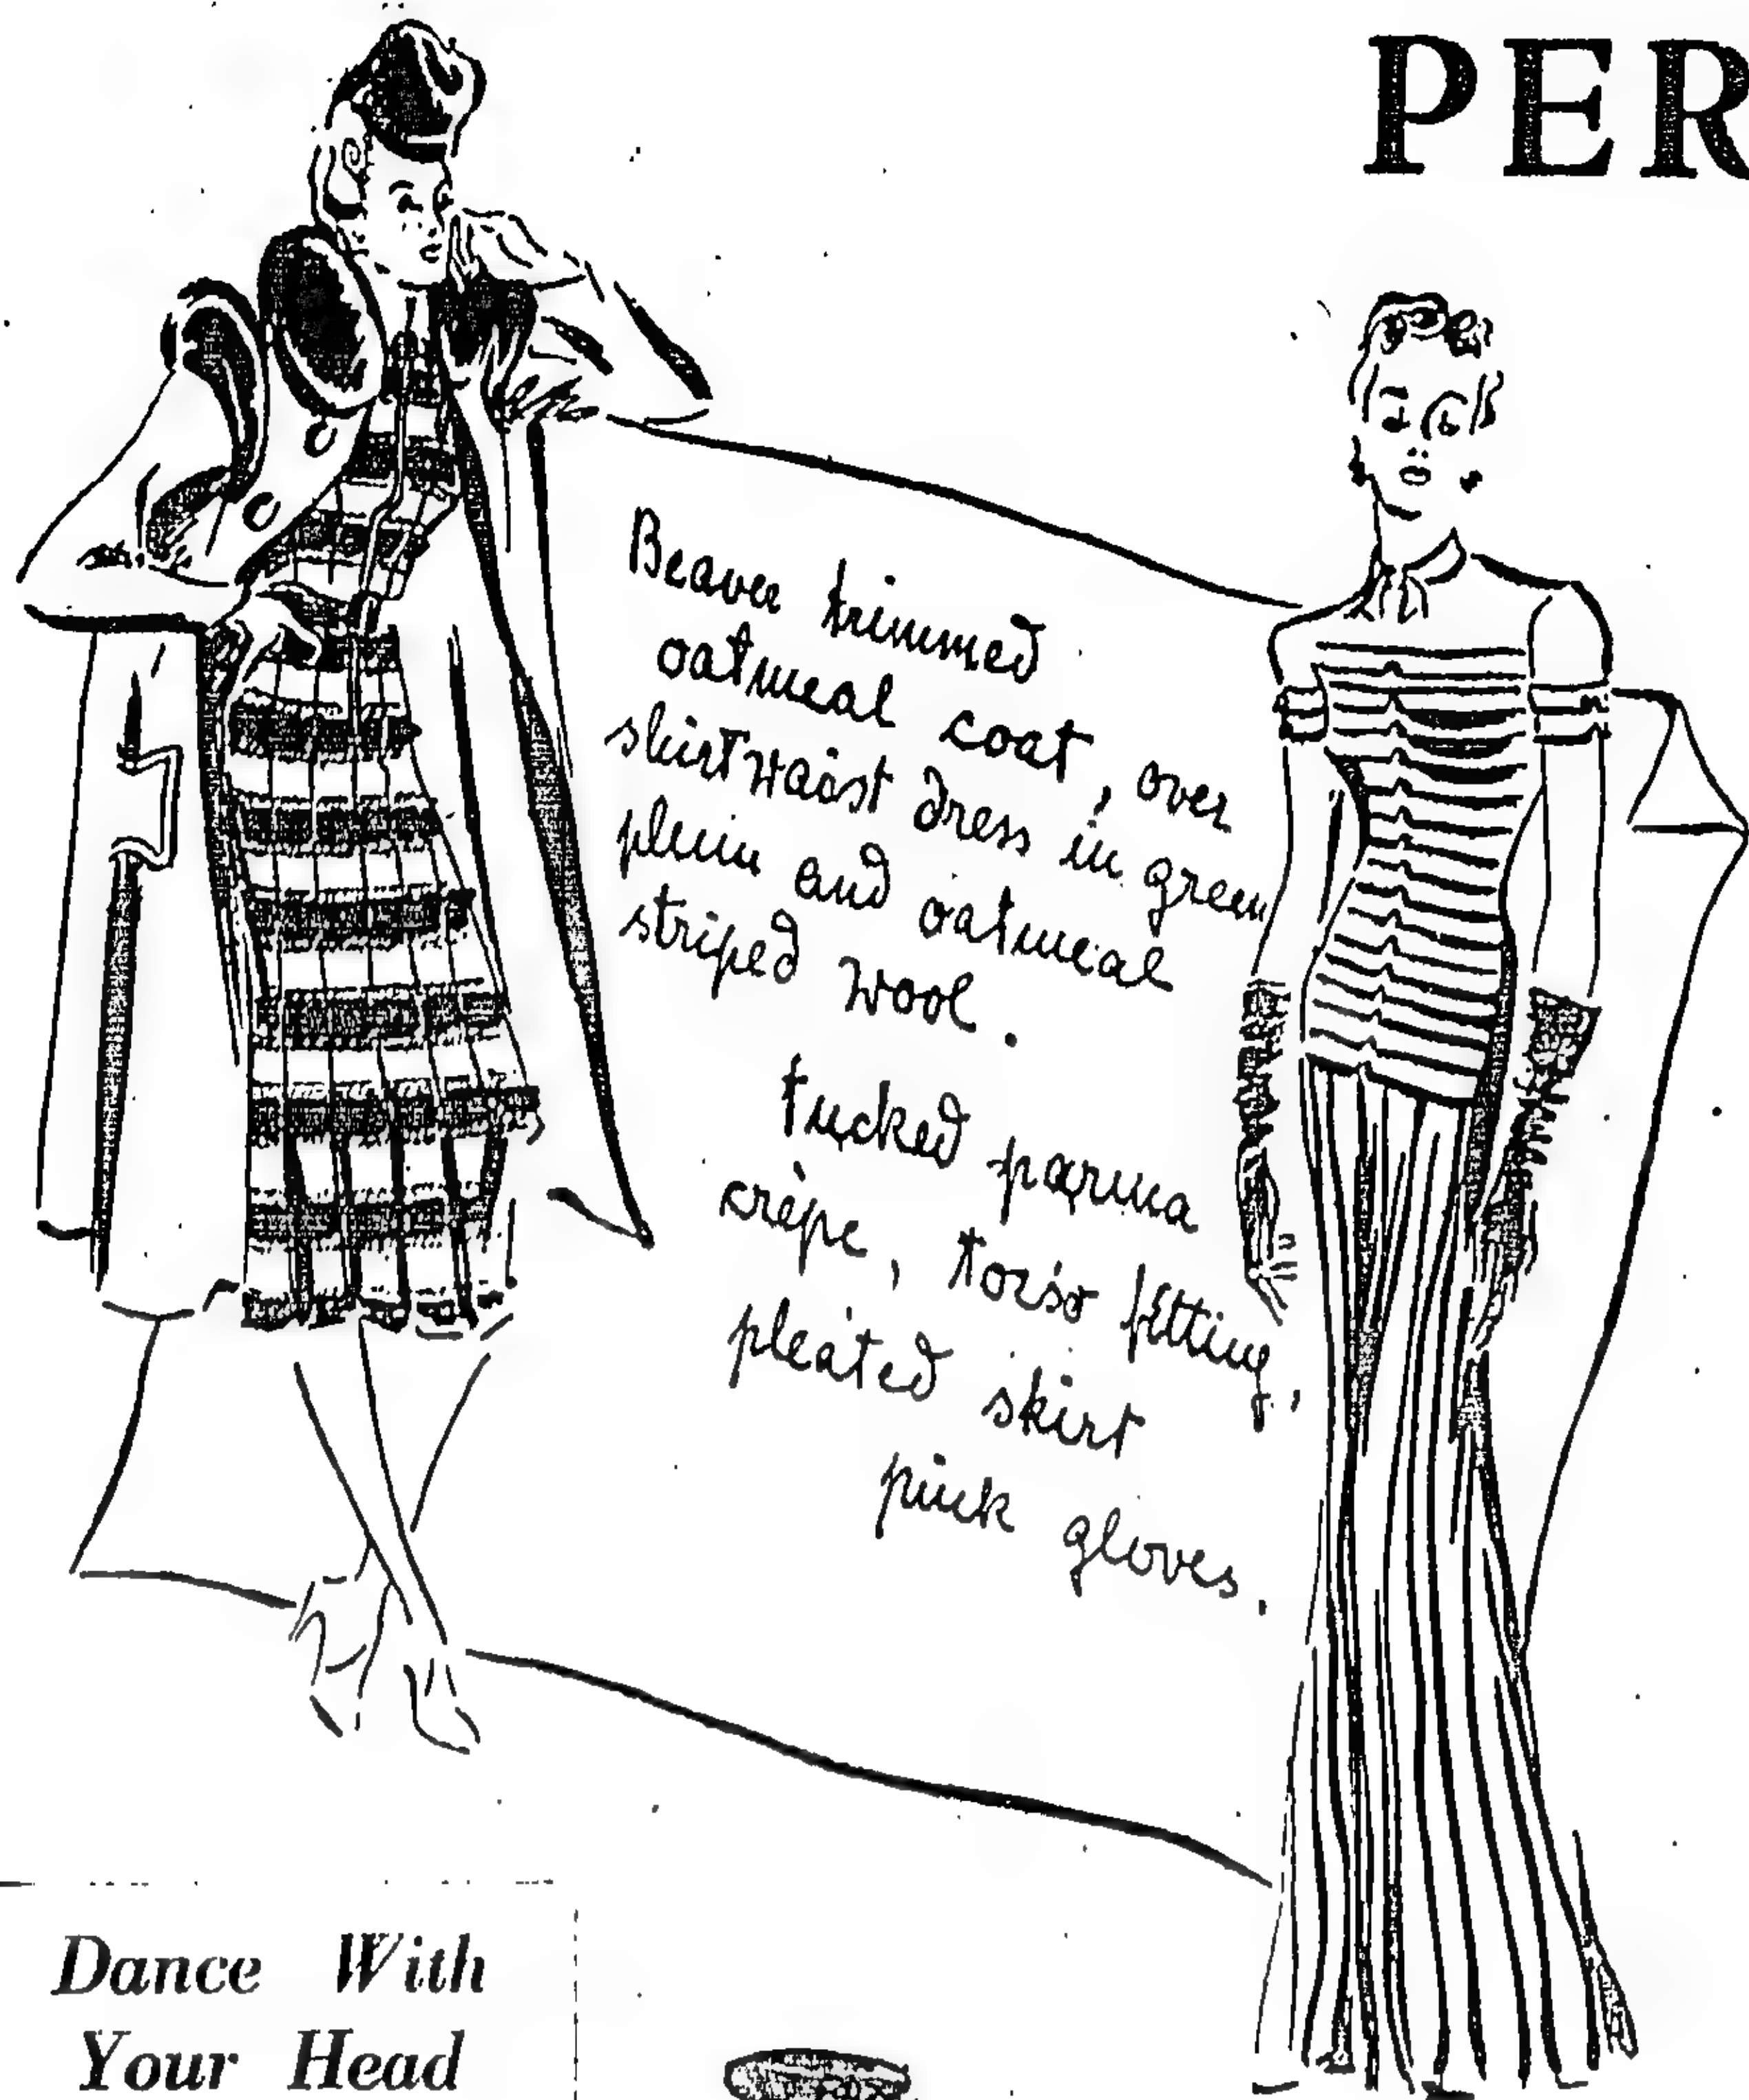 PER
Beaver trimmed
oatmeal coat, over
shirtwaist dress in green
plum and oatmeal
striped wool.
Tucked parma
crêpe, torso fitting,
pleated skirt
pink gloves.
Dance With
Your Head